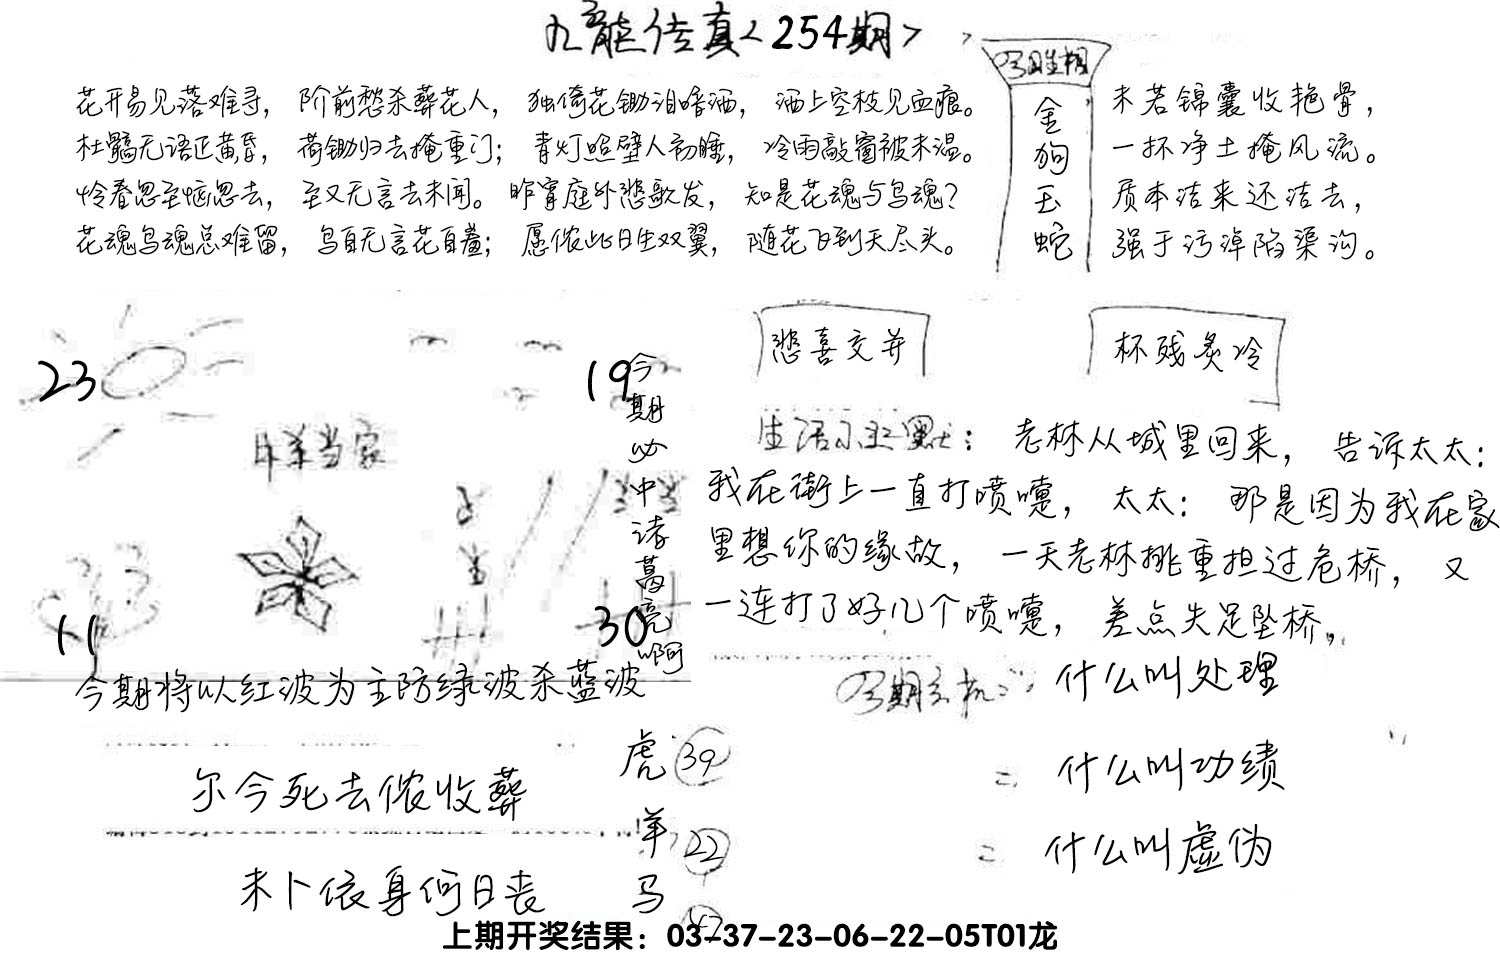 九龙传真<254期>
花开易见落难寻，阶前愁杀葬花人，独倚花锄泪暗洒，洒上空枝见血痕。
杜鹃无语正黄昏，荷锄归去掩重门；青灯照壁人初睡，冷雨敲窗被未温。
怜春忽至恼忽去，至又无言去未闻。昨宵庭外悲歌发，知是花魂与鸟魂？
花魂鸟魂总难留，鸟自无言花自羞；愿侬此日生双翼，随花飞到天尽头。
金狗玉蛇
未若锦囊收艳骨，
一抔净土掩风流。
质本洁来还洁去，
强于污淖陷渠沟。
23
19
今期必中诸葛亮啊
当家
11
30
今期将以红波为主防绿波杀蓝波
悲喜交并
杯残炙冷
生活幽默：老林从城里回来，告诉太太：
我在街上一直打喷嚏，太太：那是因为我在家
里想你的缘故，一天老林挑重担过危桥，又
一连打了好几个喷嚏，差点失足坠桥，
今期玄机：什么叫处理
什么叫功绩
什么叫虚伪
尔今死去侬收葬
未卜侬身何日丧
虎 39
羊 22
马
上期开奖结果：03-37-23-06-22-05T01龙